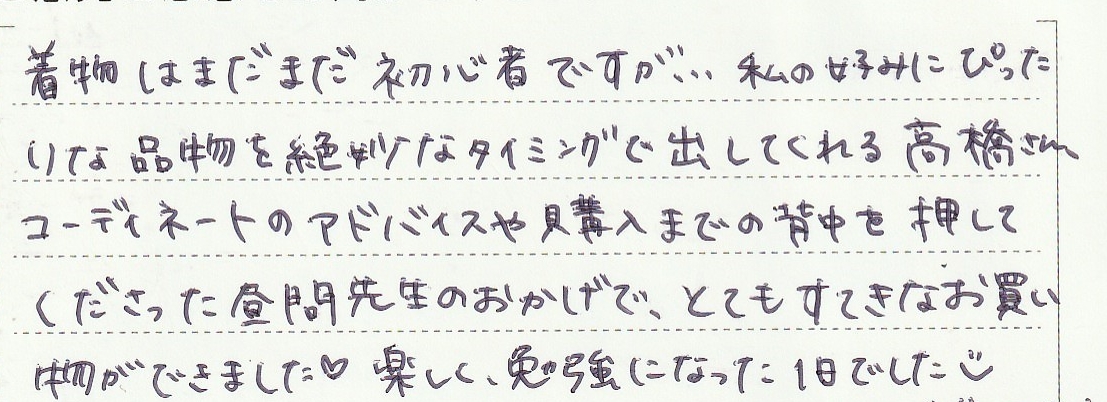 着物はまだまだ初心者ですが… 私の好みにぴった
りな品物を絶妙なタイミングで出してくれる高橋さん
コーディネートのアドバイスや購入までの背中を押して
くださった昼間先生のおかげで、とてもすてきなお買い
物ができました♡ 楽しく、勉強になった1日でした